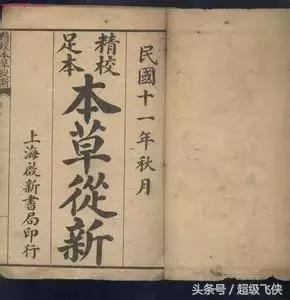 民國十一年秋月
精校
足本
本草從新
上海啟新書局印行
精校本草從新
头条号 / 超级飞侠